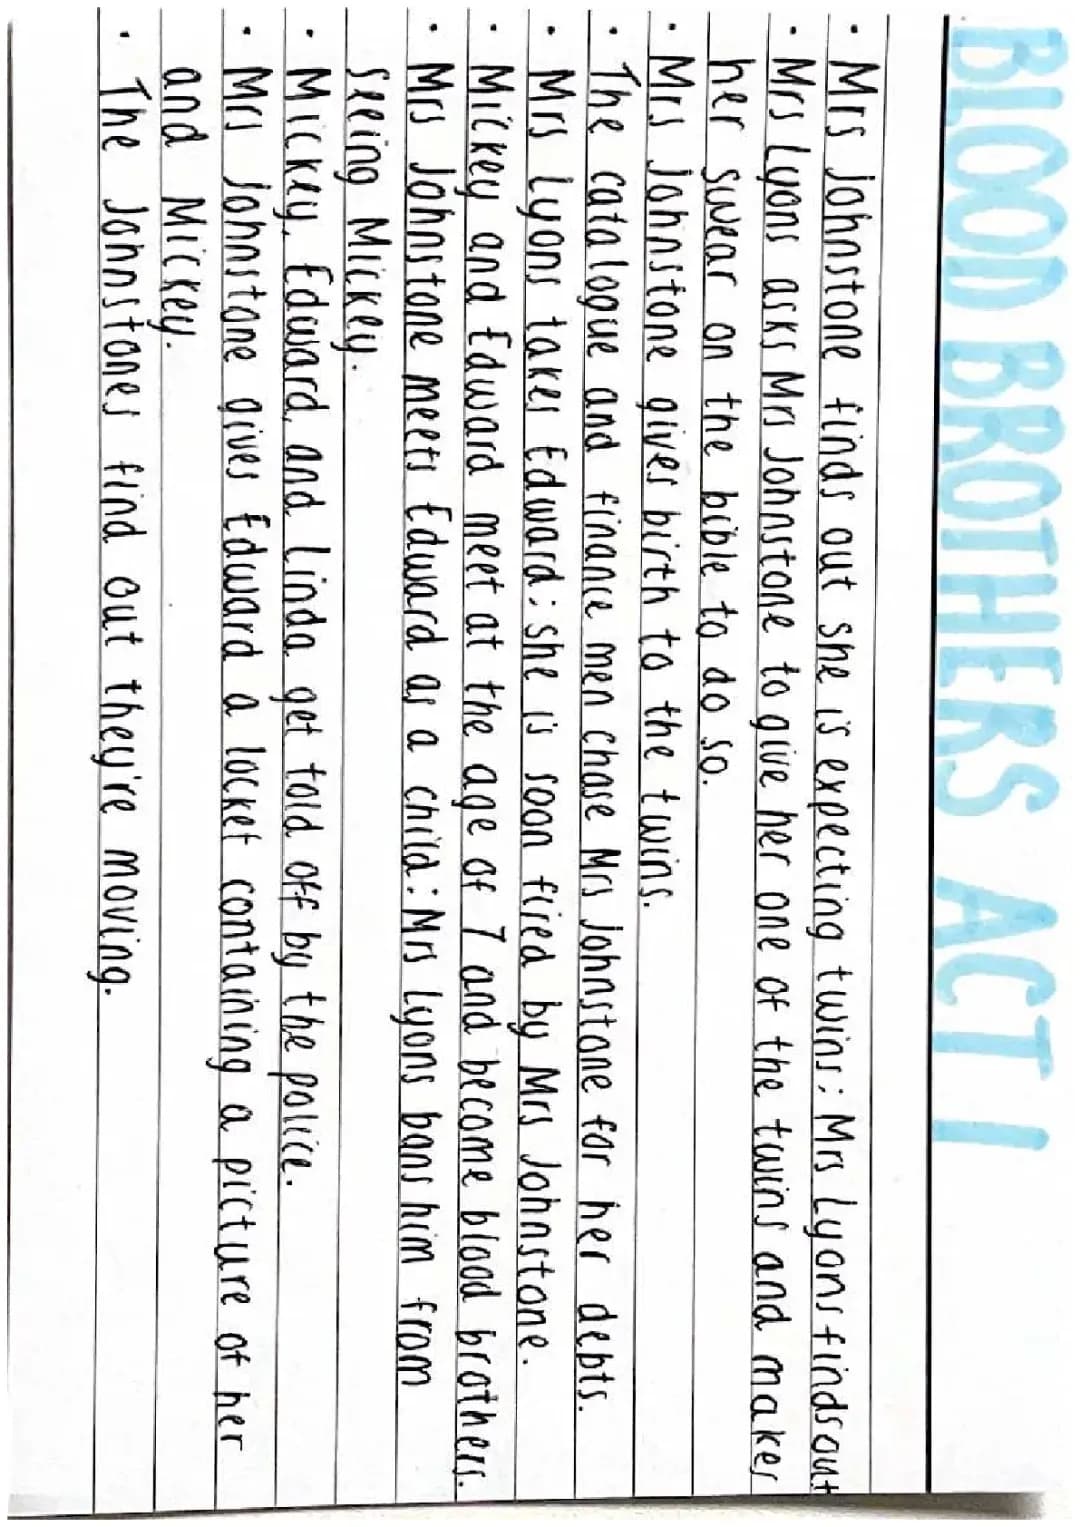 BLOOD BROTHERS ACT 1
• Mrs Johnstone finds out she is expecting twins: Mrs Lyons finds out
• Mrs Lyons asks Mrs Johnstone to give her one of the twins and makes
her swear on the bible to do so.
• Mrs Johnstone gives birth to the twins.
• The catalogue and finance men chase Mrs Johnstone for her debts.
• Mrs Lyons takes Edward: she is soon fired by Mrs Johnstone.
• Mickey and Edward meet at the age of 7 and become blood brothers.
• Mrs Johnstone meets Edward as a child: Mrs Lyons bans him from
seeing Mickey.
• Mickey, Edward, and Linda get told off by the police.
• Mrs Johnstone gives Edward a locket containing a picture of her
and Mickey.
• The Johnstones find out they're moving.